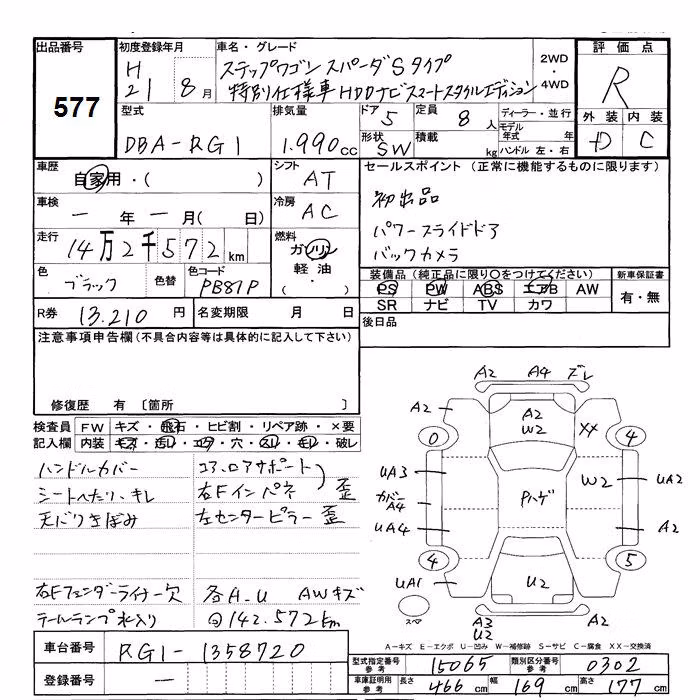 出品番号
577
初度登録年月
H
21 8月
車名・グレード
ステップワゴン スパーダSタイプ
特別仕様車HDDナビスマートスタイルエディション
2WD
・
4WD
評価点
R
外装 内装
D C
型式
DBA-RG1
排気量
1.990cc
ドア
5
定員
8人
形状
SW
積載
kg
ディーラー・並行
モデル年式 年
ハンドル 左・右
車歴
自家用・( )
シフト
AT
車検
一年一月(日)
冷房
AC
走行
14万2千572km
燃料
ガソリン
軽油・
( )
色
ブラック
色替
色コード
PB81P
セールスポイント(正常に機能するものに限ります)
初出品
パワースライドドア
バックカメラ
装備品(純正品に限り○をつけてください)
PS PW ABS エアB AW
SR ナビ TV カワ
新車保証書
有・無
R券 13.210円
名変期限 月 日
後日品
注意事項申告欄(不具合内容等は具体的に記入して下さい)
修復歴 有〔箇所 〕
検査員 FW キズ・飛石・ヒビ割・リペア跡・×要
記入欄 内装 キズ・汚レ・コゲ・穴・スレ・モレ・破レ
ハンドルカバー
シートへたり、キレ
天バリきばみ
コア、ロアサポート
右Fインパネ 歪
左センターピラー 歪
右Fフェンダーライナー欠
テールランプ水入り
各A.U AWキズ
142.572km
A2 A4 ズレ
A2
A2
W2
XX
0
4
UA3
カバー
A4
UA4
Pハゲ
W2
UA2
A2
4
5
UA1
U2
スペア
A3
U2
A2
A-キズ E-エクボ U-凹み W-補修跡 S-サビ C-腐食 XX-交換済
車台番号
RG1-1358720
登録番号
一
型式指定番号
参考
15065
類別区分番号
参考
0302
車庫証明用
参考
長さ 466cm 幅 169cm 高さ 177cm